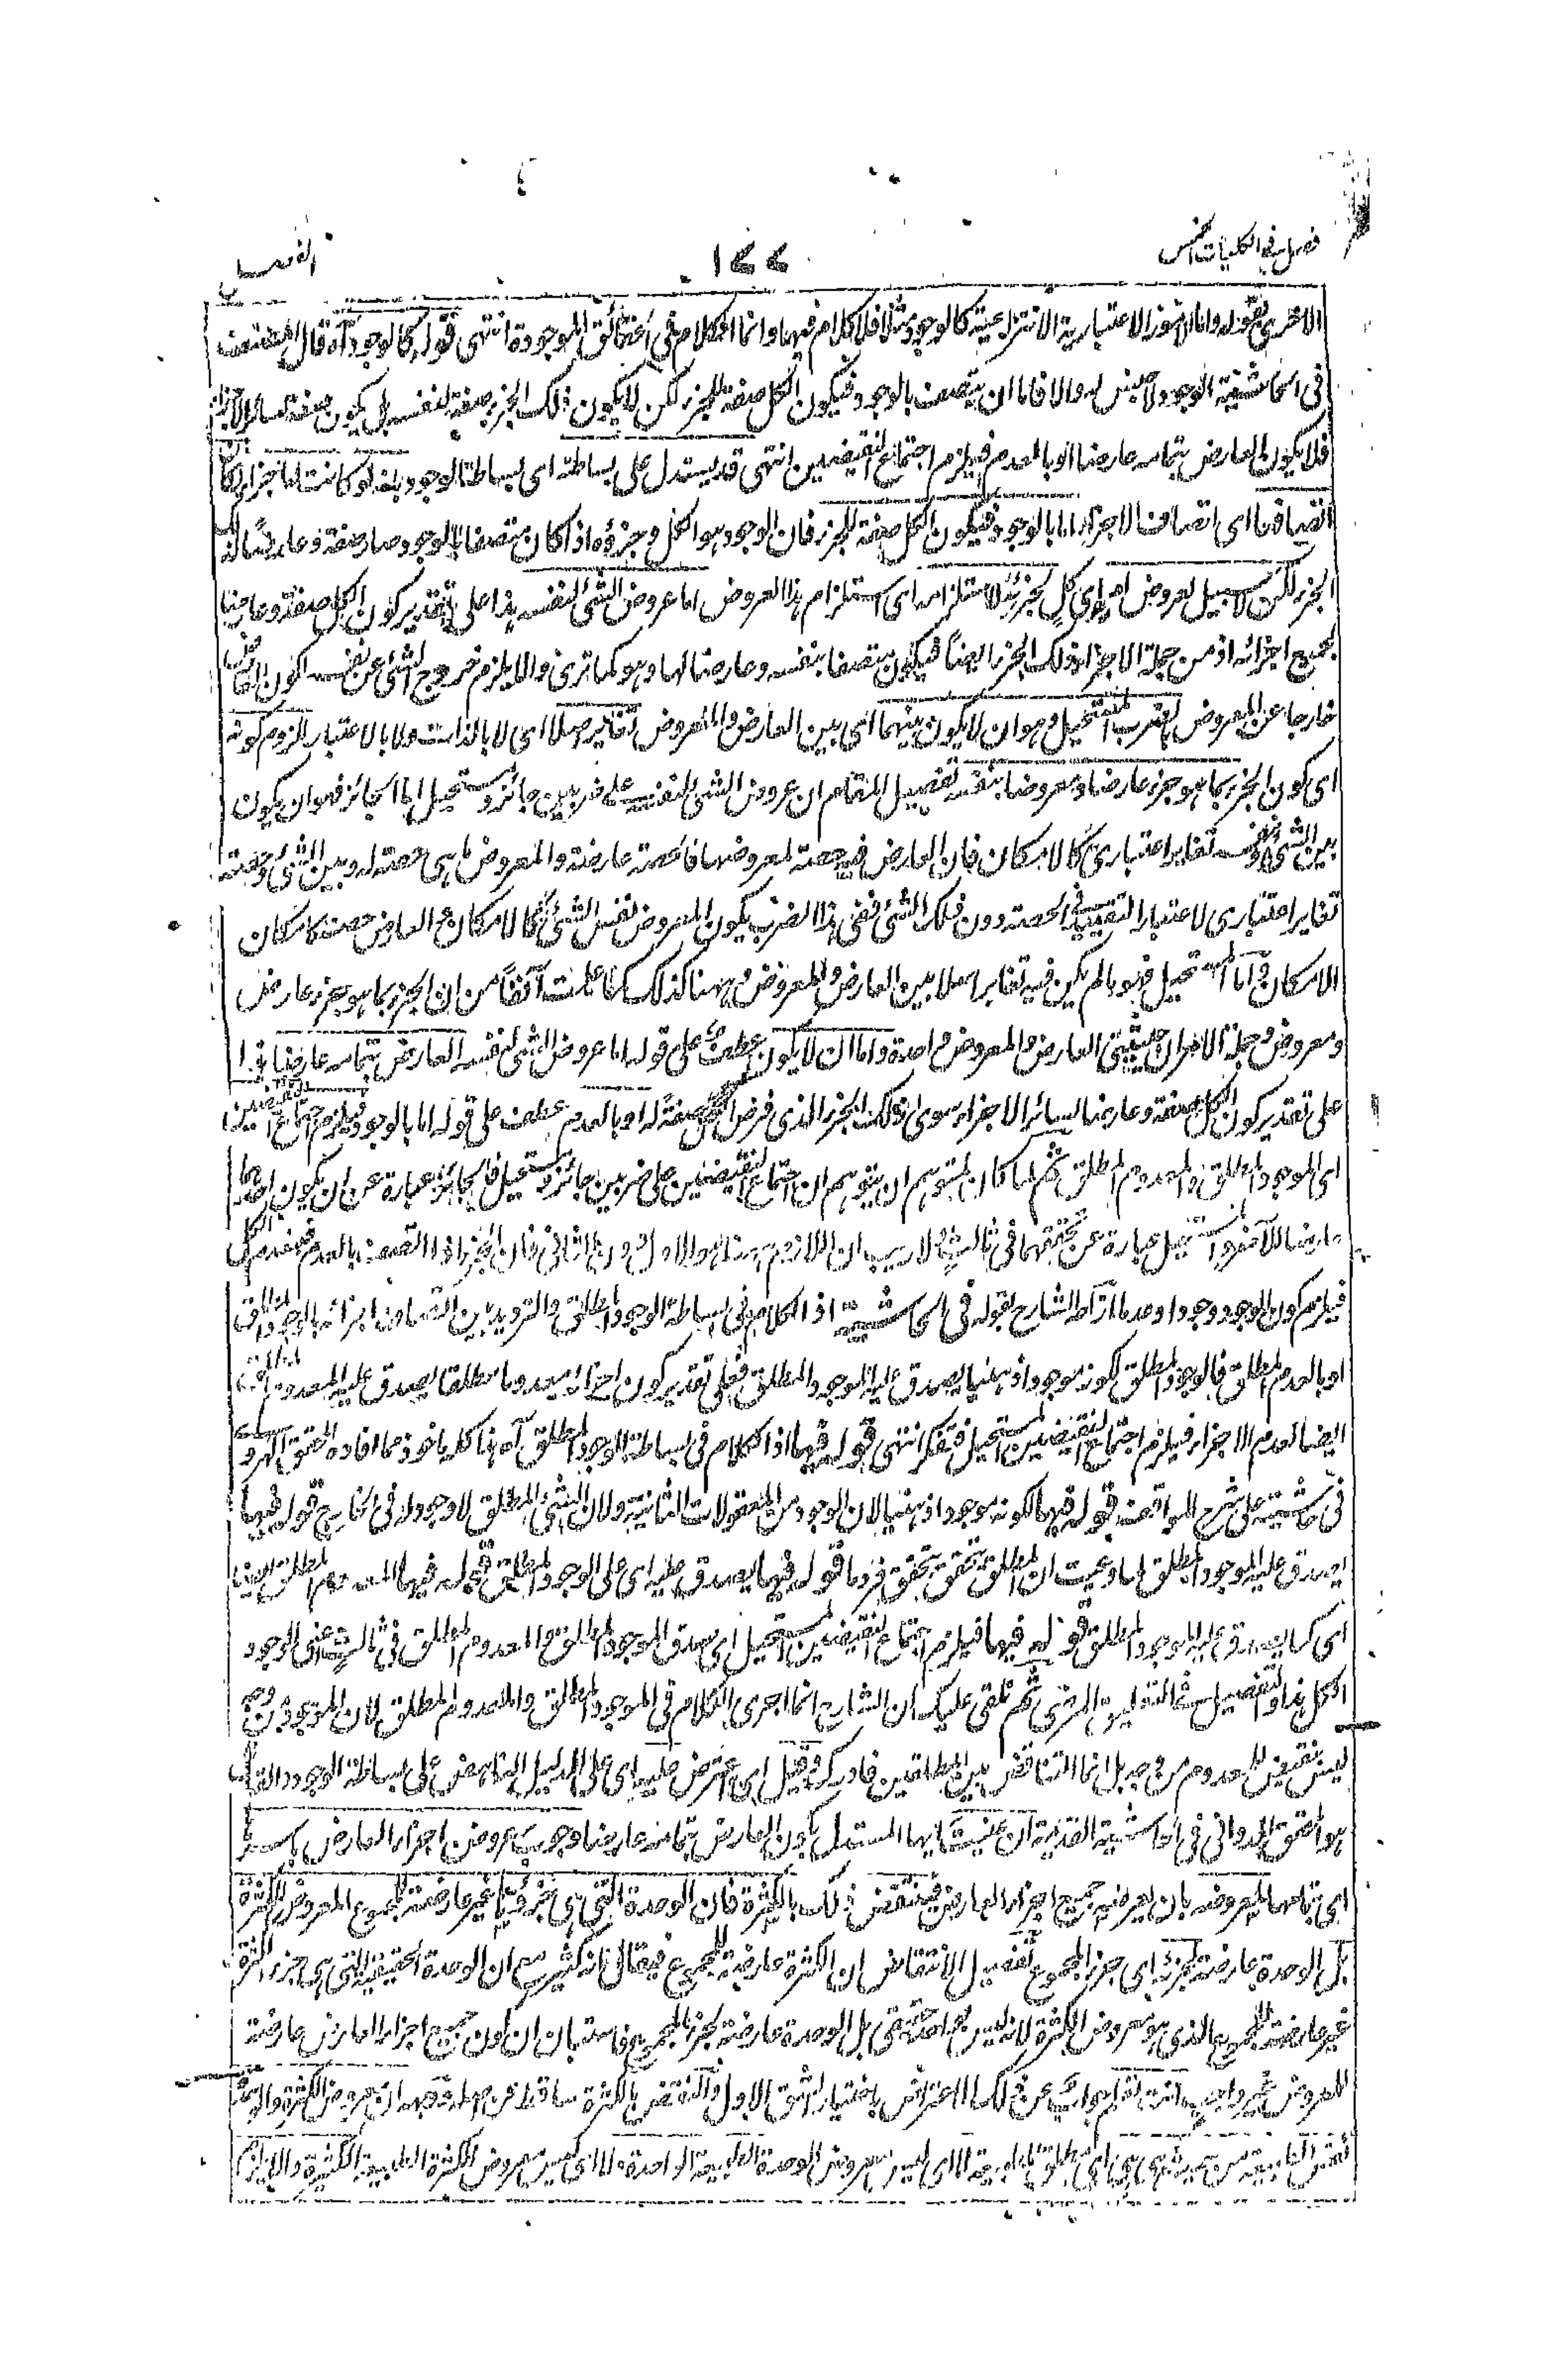 فصل في الكليات الخمس
١٧٧
الاخرى بقوله واما الامور الاعتبارية الانتزاعية كالوجود مثلا فلا كلام فيها وانما الكلام في الحقائق الموجودة انتهى قوله كالوجود آه قال المصنف
في الحاشية الوجود لا جنس له والا فاما ان يتصف بالوجود فيكون الكل صفة للجزء لكن لا يكون ذلك الجزء صفة لنفسه بل يكون صفة لسائر الاجزاء
فلا يكون العارض بتمامه عارضا او بالعدم فيلزم اجتماع النقيضين انتهى قد يستدل على بساطته اى بساطة الوجود بانه لو كانت لها اجزاء
اتصافها اى اتصاف الاجزاء اما بالوجود فيكون الكل صفة للجزء فان الوجود هو الكل وجزؤه اذا كان متصفا بالوجود صار صفة وعارضا لذلك
الجزء لكن لا سبيل لعروض امر اى كل لجزئه لاستلزامه اى استلزام هذا العروض اما عروض الشئ لنفسه هذا على تقدير كون الكل صفة وعارضا
لجميع اجزائه اذ من جملة الاجزاء ذلك الجزء ايضا فيكون متصفا بنفسه وعارضا لها وهو كما ترى والا يلزم خروج الشئ عن نفسه لكون العارض
خارجا عن المعروض لضرب المستحيل وهو ان لا يكون بينهما اى بين العارض والمعروض تغاير اصلا اى لا بالذات ولا بالاعتبار للزوم كونه
اى كون الجزء بما هو جزء عارضا ومعروضا بنفسه تفصيل المقام ان عروض الشئ لنفسه على ضربين جائز ومستحيل اما الجائز فهو ان يكون
بين الشئ ونفسه تغاير اعتبارى كالامكان فان العارض فيه حصة لمعروضها فالحصة عارضة والمعروض ما هى حصة له وبين الشئ وحصته
تغاير اعتبارى لاعتبار التقييد في الحصة دون ذلك الشئ ففى هذا الضرب يكون المعروض نفس الشئ كالامكان مع العارض حصته كامكان
الامكان واما المستحيل فهو ما لم يكن فيه تغاير اصلا بين العارض والمعروض وههنا كذلك كما علمت آنفا من ان الجزء بما هو جزء عارض
ومعروض وجملة الامر ان حيثيتى العارض والمعروض واحدة واما ان لا يكون عطف على قوله اما عروض الشئ لنفسه العارض بتمامه عارضا هذا
على تقدير كون الكل صفة وعارضا لسائر الاجزاء سوى ذلك الجزء الذى فرض الكل صفة له او بالعدم عطف على قوله اما بالوجود فيلزم اجتماع النقيضين
اى الموجود المطلق والمعدوم المطلق ثم لما كان لمتوهم ان يتوهم ان اجتماع النقيضين على ضربين جائز ومستحيل فالجائز عبارة عن ان يكون احدهما
عارضا للآخر والمستحيل عبارة عن تحققهما في ثالث ولا ريب ان اللازم ههنا هو الاول دون الثانى فان الجزء اذا اتصف بالعدم فيعدم الكل
فيلزم كون الوجود وجودا وعدما ازاحه الشارح بقوله في الحاشية اذ الكلام في بساطة الوجود المطلق والترديد بين اتصاف اجزائه بالوجود المطلق
او بالعدم المطلق فالوجود المطلق لكونه موجودا ذهنيا يصدق عليه الموجود المطلق فعلى تقدير كون اجزائه معدوما مطلقا يصدق عليه المعدوم المطلق
ايضا لعدم الاجزاء فيلزم اجتماع النقيضين المستحيل فتفكر انتهى قوله فيها اذ الكلام في بساطة الوجود المطلق آه هذا كله ماخوذ مما افاده المحقق الهروى
في حاشيته على شرح المواقف قوله فيها لكونه موجودا ذهنيا لان الوجود من المعقولات الثانية ولان الشئ المطلق لا وجود له في الخارج قوله فيها
يصدق عليه الموجود المطلق لما وعيت ان المطلق يتحقق بتحقق فرد ما قوله فيها يصدق عليه اى على الوجود المطلق قوله فيها المعدوم المطلق ايضا
اى كما يصدق عليه الموجود المطلق قوله فيها فيلزم اجتماع النقيضين المستحيل اى صدق الموجود المطلق والمعدوم المطلق في ثالث اعنى الوجود
الكل هذا والتفصيل في التعليق المرضى ثم نلقى عليك ان الشارح انما اجرى الكلام في الموجود المطلق والمعدوم المطلق لان الموجود من وجه
ليس بنقيض للمعدوم من وجه بل انما التناقض بين المطلقين فادرك وقيل اى اعترض عليه اى على الدليل الناهض على بساطة الوجود والقائل
هو المحقق الدوانى في الحاشية القديمة ان عنيت ايها المستدل بكون العارض بتمامه عارضا وجوب عروض اجزاء العارض باسرها
اى بتمامها لمعروضه بان يعرضه جميع اجزاء العارض فينتقض ذلك بالكثرة فان الوحدة التى هى جزؤها غير عارضة لمجموع المعروض للكثرة
بل الوحدة عارضة لجزئه اى جزء المجموع تفصيل الانتقاض ان الكثرة عارضة للمجموع فيقال انه كثير مع ان الوحدة الحقيقية التى هى جزء الكثرة
غير عارضة للمجموع الذى هو معروض الكثرة لانه ليس بواحد حقيقى بل الوحدة عارضة لجزء المجموع فاستبان ان كون جميع اجزاء العارض عارضة
للمعروض غير واجب انت تعلم جوابه عن ذلك الاعتراض باختيار الشق الاول والنقض بالكثرة ساقط عن اصله فوجه ان معروض الكثرة والوحدة
نفس الطبيعة من حيث هى هى اى مطلق الطبيعة لا اى ليس معروض الوحدة الطبيعة الواحدة ولا اى ليس معروض الكثرة الطبيعة الكثيرة والا يلزم